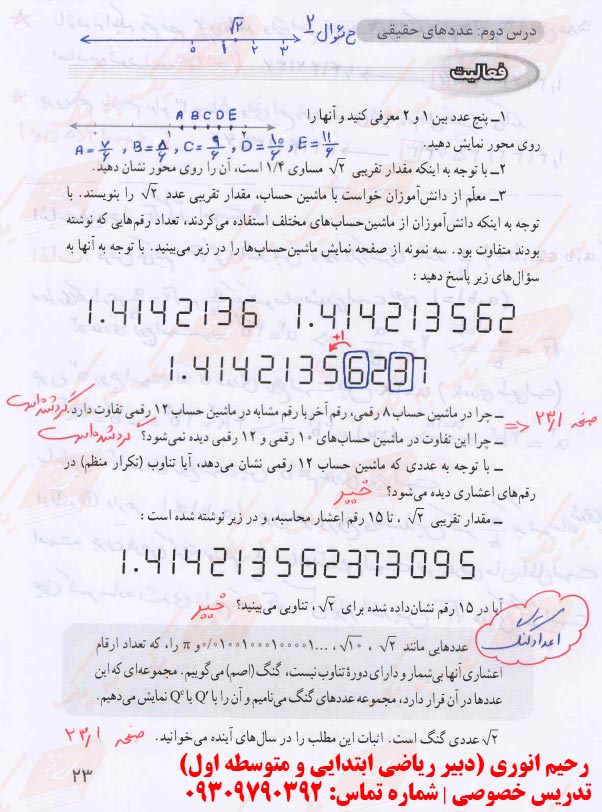 درس دوم: عددهای حقیقی
ح سؤال ۲
√2
0 1 2 3
فعالیت
۱ــ پنج عدد بین ۱ و ۲ معرفی کنید و آنها را
A B C D E
1 2
روی محور نمایش دهید.
A=۷/۶ , B=۸/۶ , C=۹/۶ , D=۱۰/۶ , E=۱۱/۶
۲ــ با توجه به اینکه مقدار تقریبی √۲ مساوی ۱/۴ است، آن را روی محور نشان دهید.
۳ــ معلّم از دانش‌آموزان خواست با ماشین حساب، مقدار تقریبی عدد √۲ را بنویسند. با
توجه به اینکه دانش‌آموزان از ماشین‌حساب‌های مختلف استفاده می‌کردند، تعداد رقم‌هایی که نوشته
بودند متفاوت بود. سه نمونه از صفحه نمایش ماشین‌حساب‌ها را در زیر می‌بینید. با توجه به آنها به
سؤال‌های زیر پاسخ دهید :
1.4142136 1.414213562
+1
1.41421356237
ــ چرا در ماشین حساب ۸ رقمی، رقم آخر با رقم مشابه در ماشین حساب ۱۲ رقمی تفاوت دارد. گرد شده است
صفحه ۲۳/۱
ــ چرا این تفاوت در ماشین حساب‌های ۱۰ رقمی و ۱۲ رقمی دیده نمی‌شود؟ گرد نشده است
ــ با توجه به عددی که ماشین حساب ۱۲ رقمی نشان می‌دهد، آیا تناوب (تکرار منظم) در
رقم‌های اعشاری دیده می‌شود؟ خیر
ــ مقدار تقریبی √۲ ، تا ۱۵ رقم اعشار محاسبه، و در زیر نوشته شده است :
1.414213562373095
آیا در ۱۵ رقم نشان‌داده شده برای √۲، تناوبی می‌بینید؟ خیر
اعداد گنگ
عددهایی مانند √۲ ، √۱۰ ، ...۰/۰۱۰۰۱۰۰۰۱۰۰۰۰۱ و π را، که تعداد ارقام
اعشاری آنها بی‌شمار و دارای دورهٔ تناوب نیست، گنگ (اصم) می‌گوییم. مجموعه‌ای که این
عددها در آن قرار دارد، مجموعه عددهای گنگ می‌نامیم و آن را با Q′ یا Qᶜ نمایش می‌دهیم.
√۲ عددی گنگ است. اثبات این مطلب را در سال‌های آینده می‌خوانید. صفحه ۲۳/۱
۲۳
رحیم انوری (دبیر ریاضی ابتدایی و متوسطه اول)
تدریس خصوصی | شماره تماس: ۰۹۳۰۹۷۹۰۳۹۲